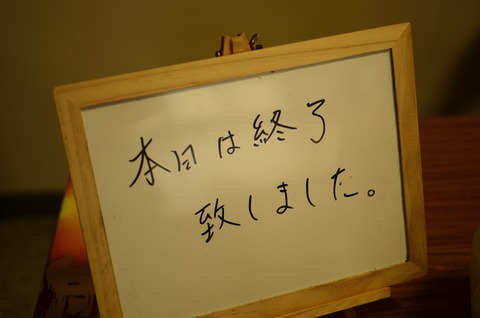 本日は終了
致しました。